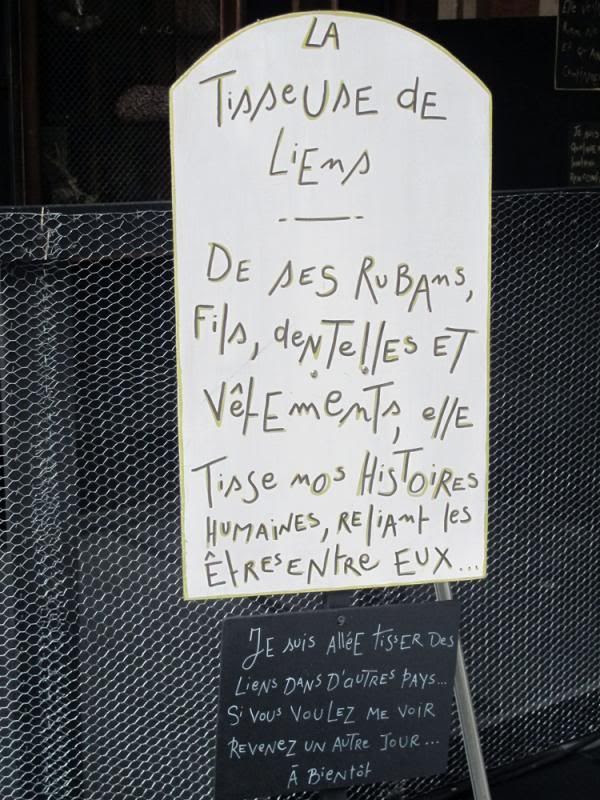 LA
TISSEUSE DE
LIENS
DE SES RUBANS,
FILS, DENTELLES ET
VÊTEMENTS, ELLE
TISSE NOS HISTOIRES
HUMAINES, RELIANT LES
ÊTRES ENTRE EUX...
JE SUIS ALLÉE TISSER DES
LIENS DANS D'AUTRES PAYS...
SI VOUS VOULEZ ME VOIR
REVENEZ UN AUTRE JOUR...
À BIENTÔT